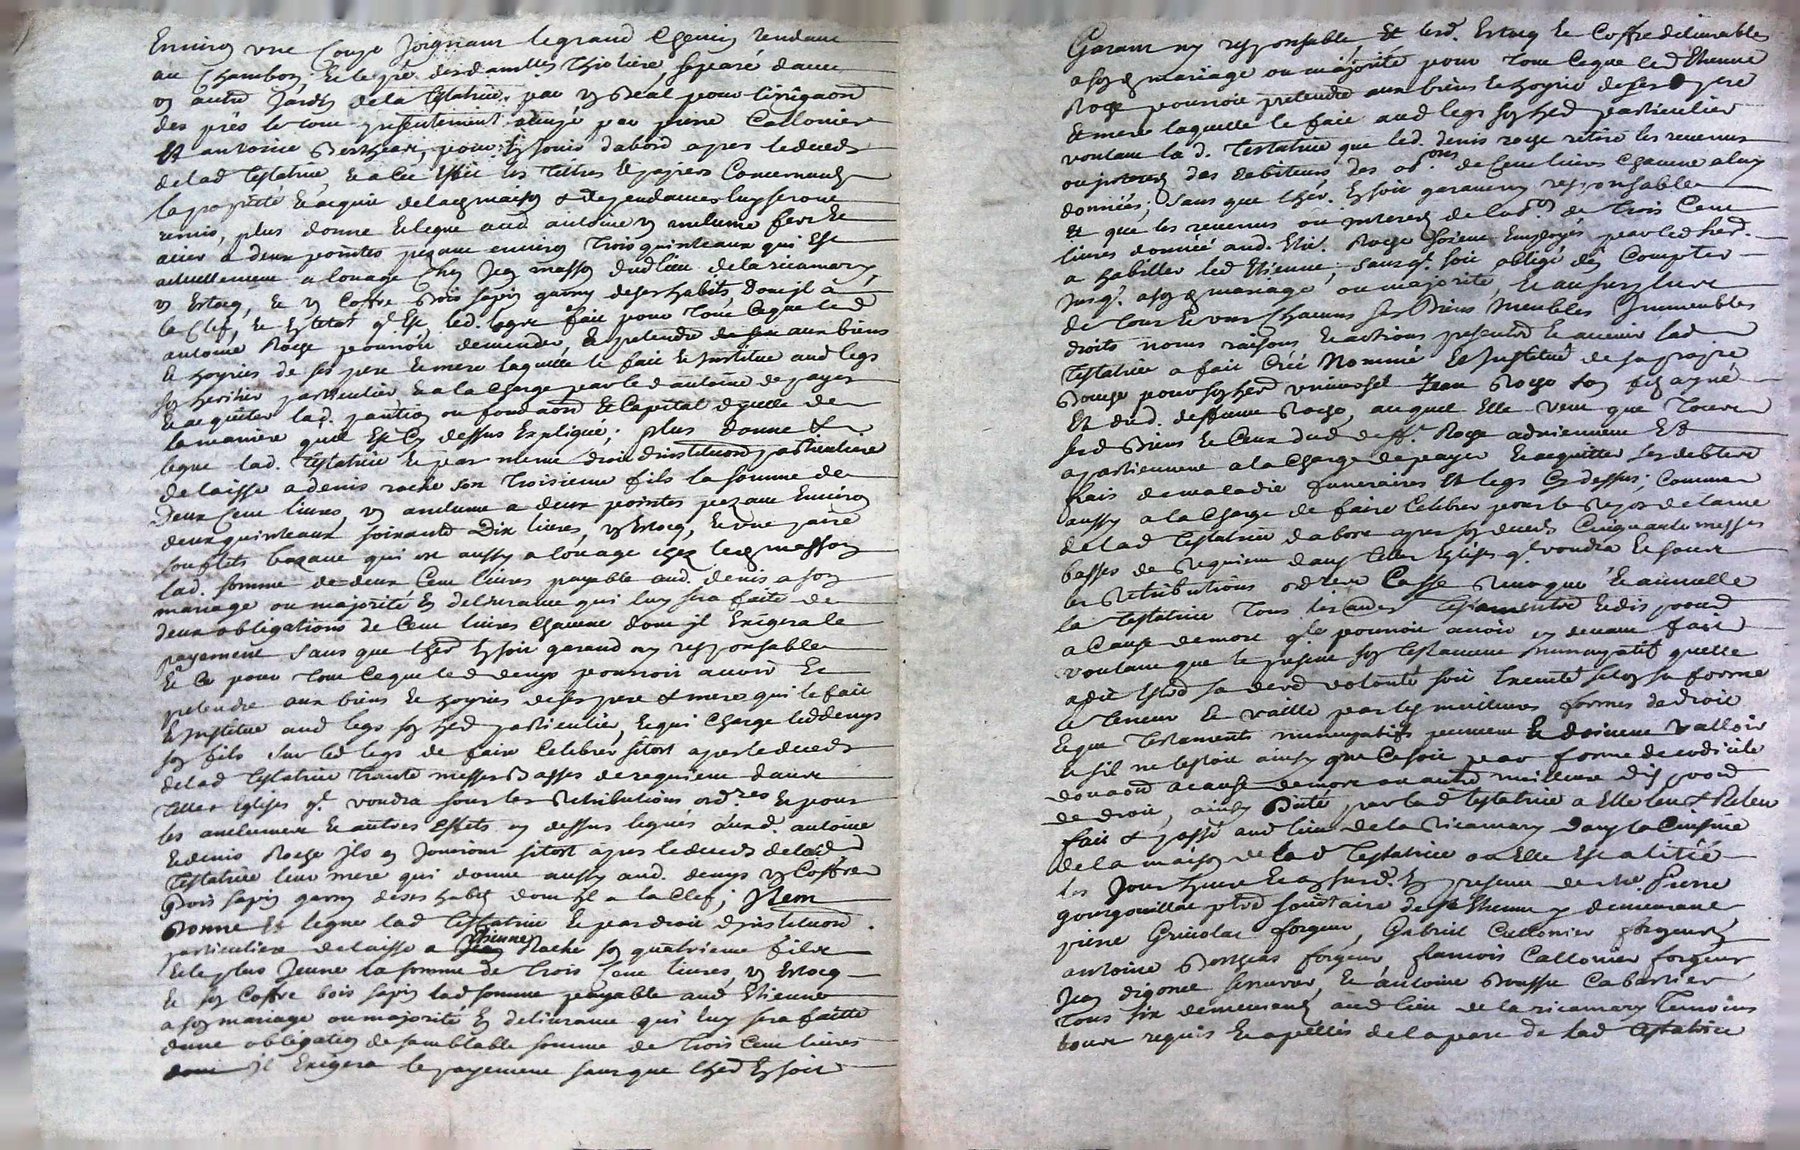 Environ une Coupe Joignant le grand Chemin tendant
au Chambon, Et le pré des damlles Thiolière, separé d'avec
un autre Jardin de la testatrice par un Beal pour l'irrigaon
des prés le tout presentement par pierre Callonier
Et antoine Berthear, pour En Jouir d'abord apres le deceds
de lad testatrice, Et a cet Effet les tittres Et papiers Concernants
la propriété Et acquit de lad maison & dependances luy seront
remis, plus donne Et legue aud antoine un enclume fer Et
acier a deux pointes pezant environ trois quinteaux qui Est
actuellement a louage Chez Jean masson dud lieu de la ricamary,
un Estocq, Et un Coffre Bois sapin garny de ses habits dont il a
la Clef, Et En l'etat ql Est, led. legs fait pour tout Ce que led
antoine Roche pourroit demender Et pretendre aux biens
Et hoyries de ses pere Et mere laquelle le fait Et Institue aud legs
son heritier particulier Et a la Charge par led antoine de payer
Et acquiter lad. pention ou fondaon Et Capital d'icelle de
la maniere quil Est Cy dessus Expliqué; plus donne &
legue lad. testatrice Et par meme droit d'instituon particuliere
delaisse a denis roche son troisieme fils la somme de
Deux Cent livres, un anclume a deux pointes pezant Environ
deux quinteaux soixante Dix livres, un Estocq, Et une paire
souflets bazane qui est aussy a louage chez led masson
lad. somme de deux Cent livres payable aud. denis a son
mariage ou majorité En delivrance qui luy sera faite de
deux obligations de Cent livres Chacune dont il Exigera le
payement sans que lhed En soit garand ny responsable
Et Ce pour tout Ce que led denys pourroit avoir Et
pretendre aux biens Et hoyries de ses pere & mere qui le fait
Et Institue aud legs son hed particulier, Et qui Charge led denys
son fils sur led legs de faire Celebrer sitost apres le deceds
de lad testatrice trante messes Basses de requiem dans
telles Eglises ql voudra sous les retributions ordres Et pour
les anclumes Et autres Effets cy dessus legués auxd. antoine
Et denis Roche ils en Jouiront sitost apres le deceds de lad
testatrice leur mere qui donne aussy aud. denys un Coffre
Bois sapin garny de ses habits dont il a la Clef; Item
Donne Et legue lad testatrice Et par droit d'instituon
particuliere delaisse a Etienne Roche son quatrieme fils
Et le plus Jeune la somme de trois Cent livres, un Estocq
Et son Coffre bois sapin lad somme payable aud Etienne
a son mariage ou majorité En delivrance qui luy sera faitte
d'une obligation de semblable somme de trois Cent livres
dont il Exigera le payement sans que lhed En soit
Garant ny responsable Et lesd. Estocq Et Coffre delivrables
a son d mariage ou majorité pour tout Ce que led Etienne
Roche pourroit pretendre aux biens Et hoyrie de ses pere
Et mere laquelle le fait aud legs son hed particulier
voulant lad. testatrice que led. denis roche retire les revenus
ou interets des debiteurs des obons de Cent livres Chacune a luy
données; sans que lhed. En soit garant ny responsable
Et que les revenus ou interets de lad. de trois Cent
livres donnée aud. Eti. Roche soient Employés par led hed.
a habiller led Etienne, sans ql soit obligé d'en Compter
jusq. a son d mariage ou majorité, Et au surplus
de tous Et uns Chacuns ses Biens Meubles Immeubles
droits noms raisons Et actions presents Et avenir lad.
testatrice a fait Créé Nommé Et Institué de sa propre
Bouche pour son hed universel Jean Roche son fils ayné
Et dud. deffunt Roche, auquel Elle veut que tous
sesd Biens Et Ceux dud deff. Roche adviennent Et
apartiennent a la Charge de payer Et acquitter ses debtes
frais de maladie funeraires Et legs Cy dessus; Comme
aussy a la Charge de faire Celebrer pour le repos de l'ame
de lad testatrice dabord apres son deceds Cinquante messes
basses de requiem dans telles Eglises ql voudra Et sous
les retributions ordres Casse revoque Et annulle
la testatrice tous les autres testaments Et dispoons
a Cause de mort ql pourroit avoir cy devant fait
voulant que le present son testament nunnupatif quelle
a dit Estre sa dere volonté soit Executé selon sa forme
Et teneur Et vaille par les meilleures formes de droit
Et que testaments nunnupatifs peuvent Et doivent valloir
Et sil ne valoit ainsy que Ce soit par forme de codicile
donaon a cause de mort ou autre meilleure dispoon
de droit, ainsy Dicté par lad testatrice a Elle leu & Releu
fait & passé aud lieu de la Ricamary dans la Cuisine
de la maison de lad testatrice ou Elle Est alitée
les Jour heure Et an susd. En presence de Me. Pierre
gourgouillat ptre societaire de St Etienne y demeurant,
pierre Griveolat forgeur, Gabriel Callonier forgeur,
antoine Bertheas forgeur francois Callonier forgeur
Jean digonet serrurier, Et antoine Brosse Cabartier
tous six demeurants aud lieu de la ricamary temoins
tous requis Et apellés de la part de lad testatrice